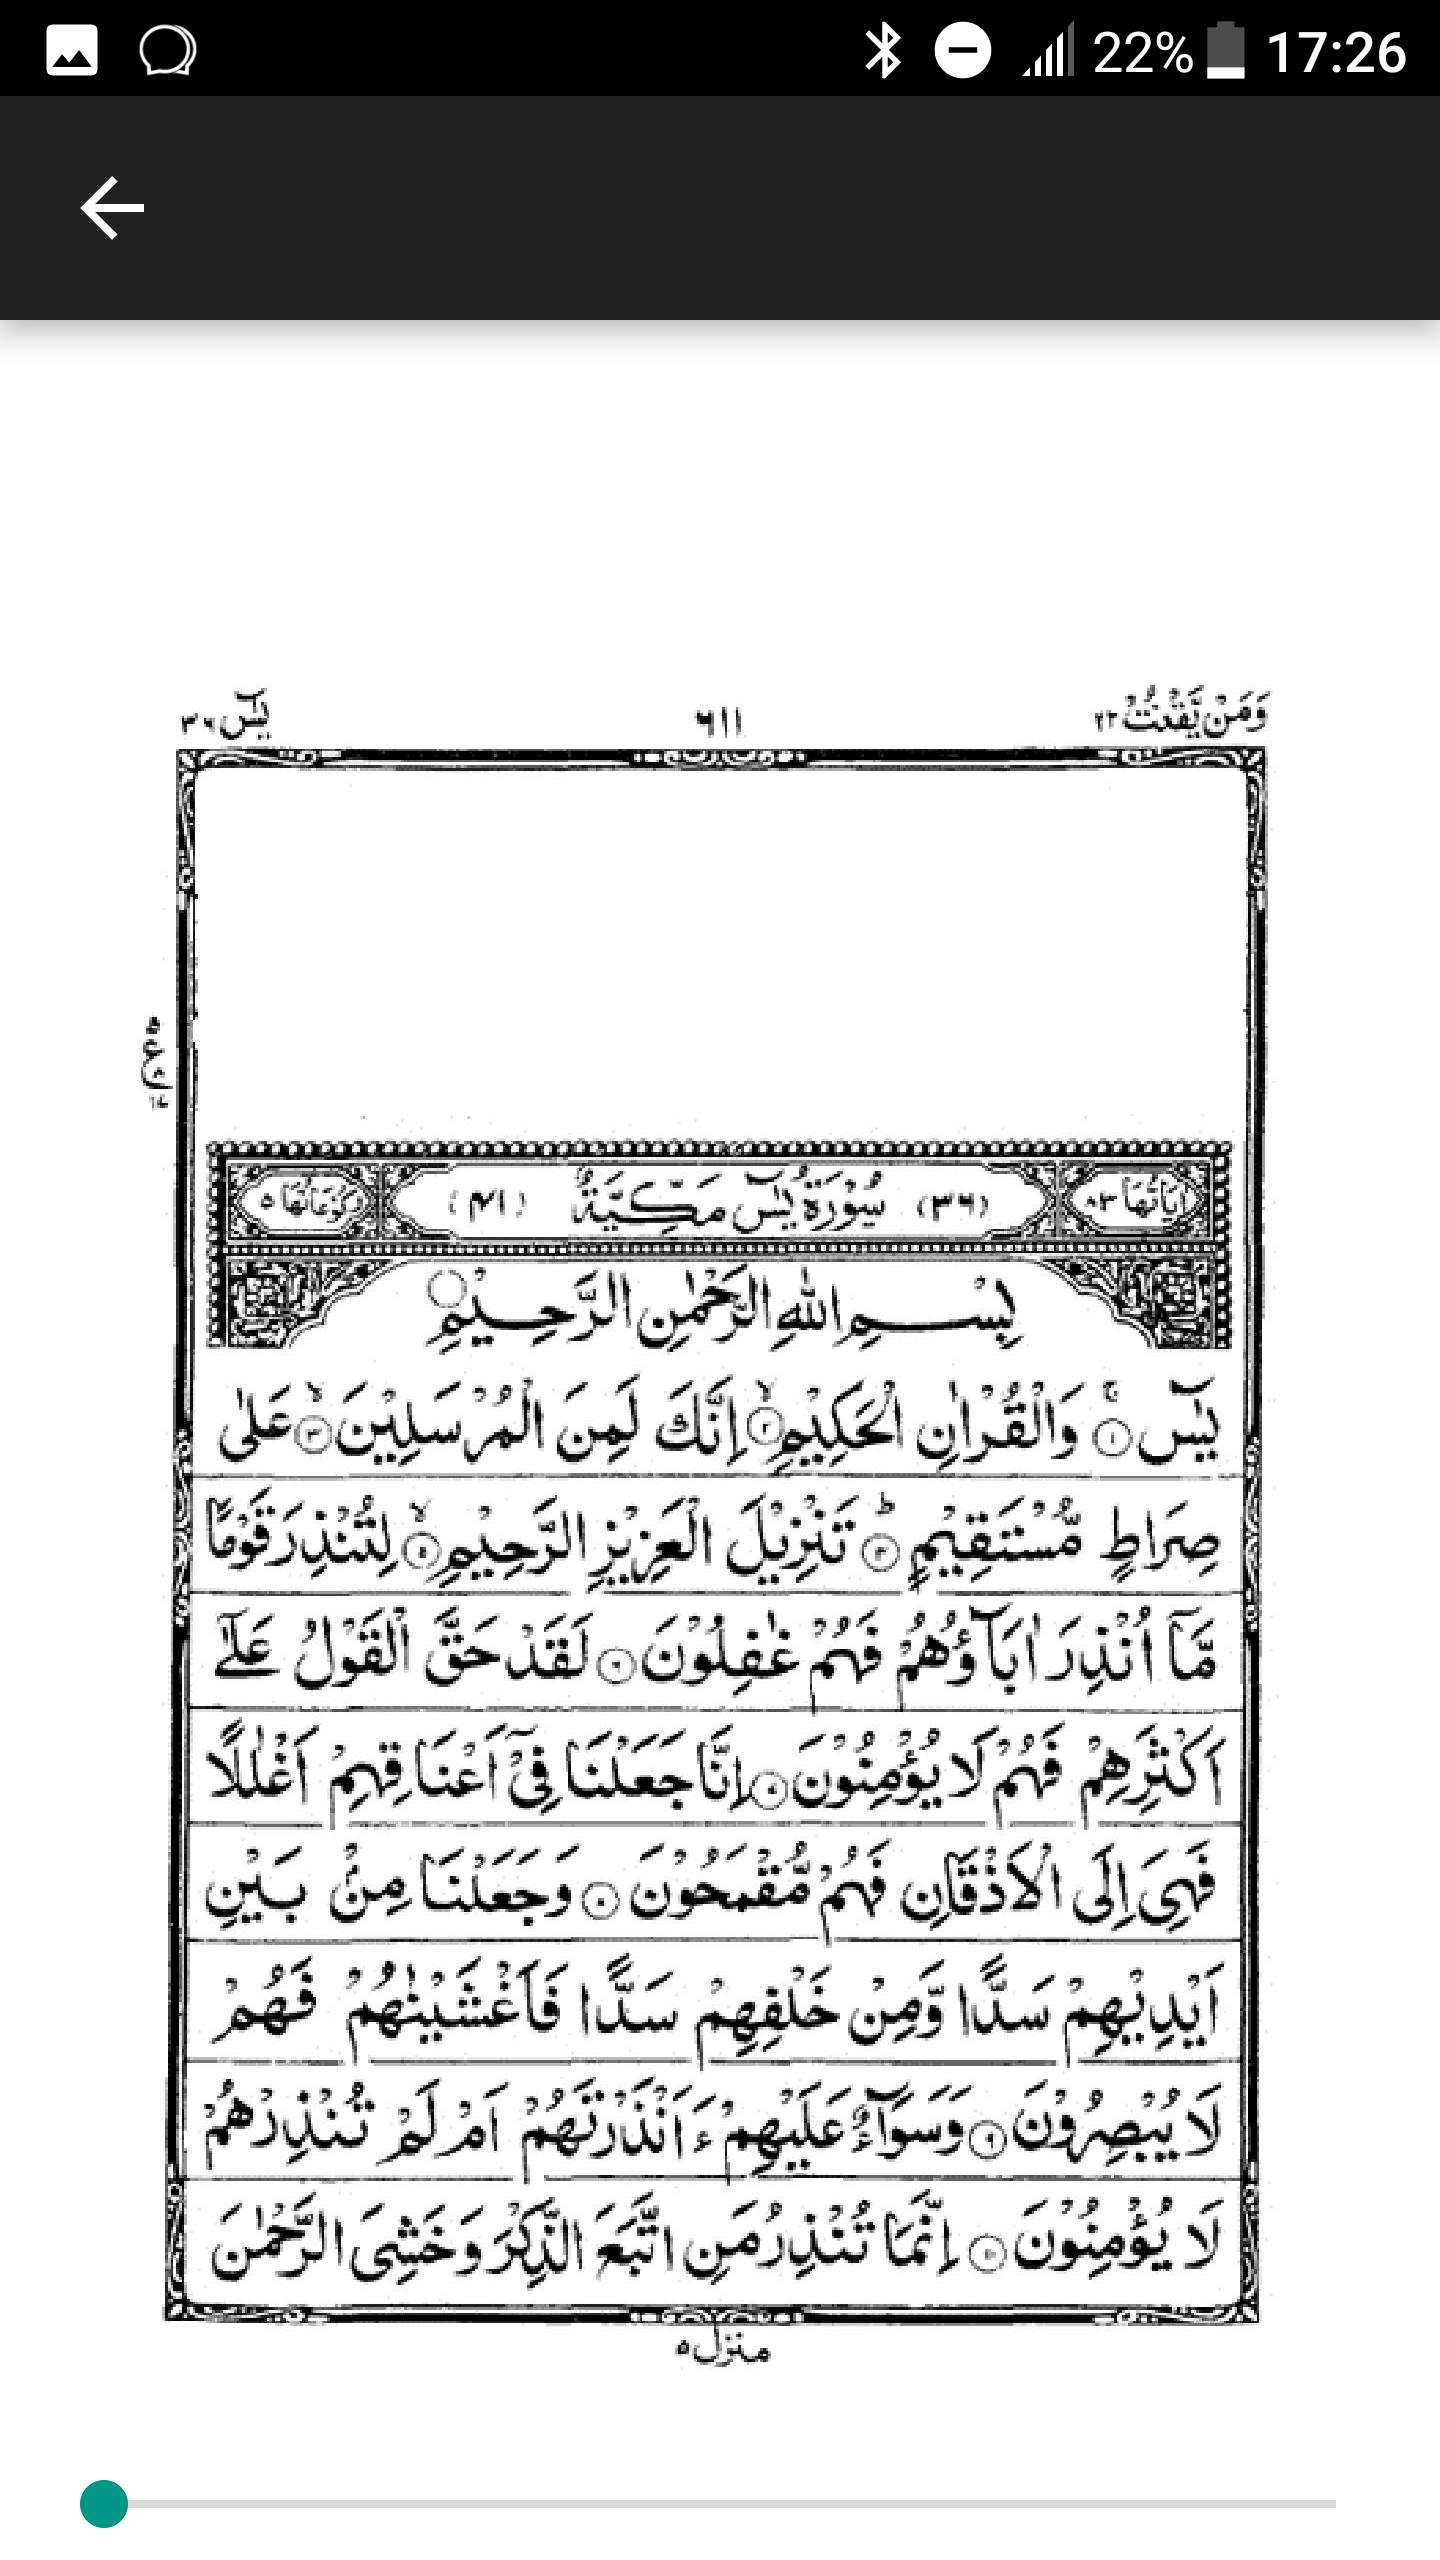 22% 17:26
وَمَنْ يَّقْنُتْ ٢٢
٦١١
يٰسٓ ٣٦
اٰيَاتُهَا ٨٣
(٣٦) سُوْرَةُ يٰسٓ مَكِّيَّةٌ (٤١)
رُكُوْعَاتُهَا ٥
بِسْمِ اللّٰهِ الرَّحْمٰنِ الرَّحِيْمِ
يٰسٓ ۚ ﴿١﴾ وَالْقُرْاٰنِ الْحَكِيْمِ ۙ ﴿٢﴾ اِنَّكَ لَمِنَ الْمُرْسَلِيْنَ ۙ ﴿٣﴾ عَلٰى
صِرَاطٍ مُّسْتَقِيْمٍ ؕ ﴿٤﴾ تَنْزِيْلَ الْعَزِيْزِ الرَّحِيْمِ ۙ ﴿٥﴾ لِتُنْذِرَ قَوْمًا
مَّآ اُنْذِرَ اٰبَآؤُهُمْ فَهُمْ غٰفِلُوْنَ ﴿٦﴾ لَقَدْ حَقَّ الْقَوْلُ عَلٰٓى
اَكْثَرِهِمْ فَهُمْ لَا يُؤْمِنُوْنَ ﴿٧﴾ اِنَّا جَعَلْنَا فِيْٓ اَعْنَاقِهِمْ اَغْلٰلًا
فَهِىَ اِلَى الْاَذْقَانِ فَهُمْ مُّقْمَحُوْنَ ﴿٨﴾ وَجَعَلْنَا مِنْۢ بَيْنِ
اَيْدِيْهِمْ سَدًّا وَّمِنْ خَلْفِهِمْ سَدًّا فَاَغْشَيْنٰهُمْ فَهُمْ
لَا يُبْصِرُوْنَ ﴿٩﴾ وَسَوَآءٌ عَلَيْهِمْ ءَاَنْذَرْتَهُمْ اَمْ لَمْ تُنْذِرْهُمْ
لَا يُؤْمِنُوْنَ ﴿١٠﴾ اِنَّمَا تُنْذِرُ مَنِ اتَّبَعَ الذِّكْرَ وَخَشِىَ الرَّحْمٰنَ
منزل ٥